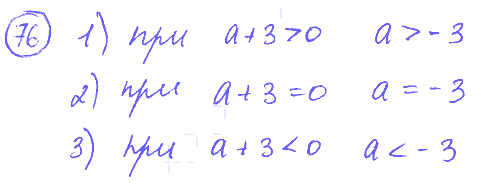 76 1) при a+3>0 a>-3
2) при a+3=0 a=-3
3) при a+3<0 a<-3